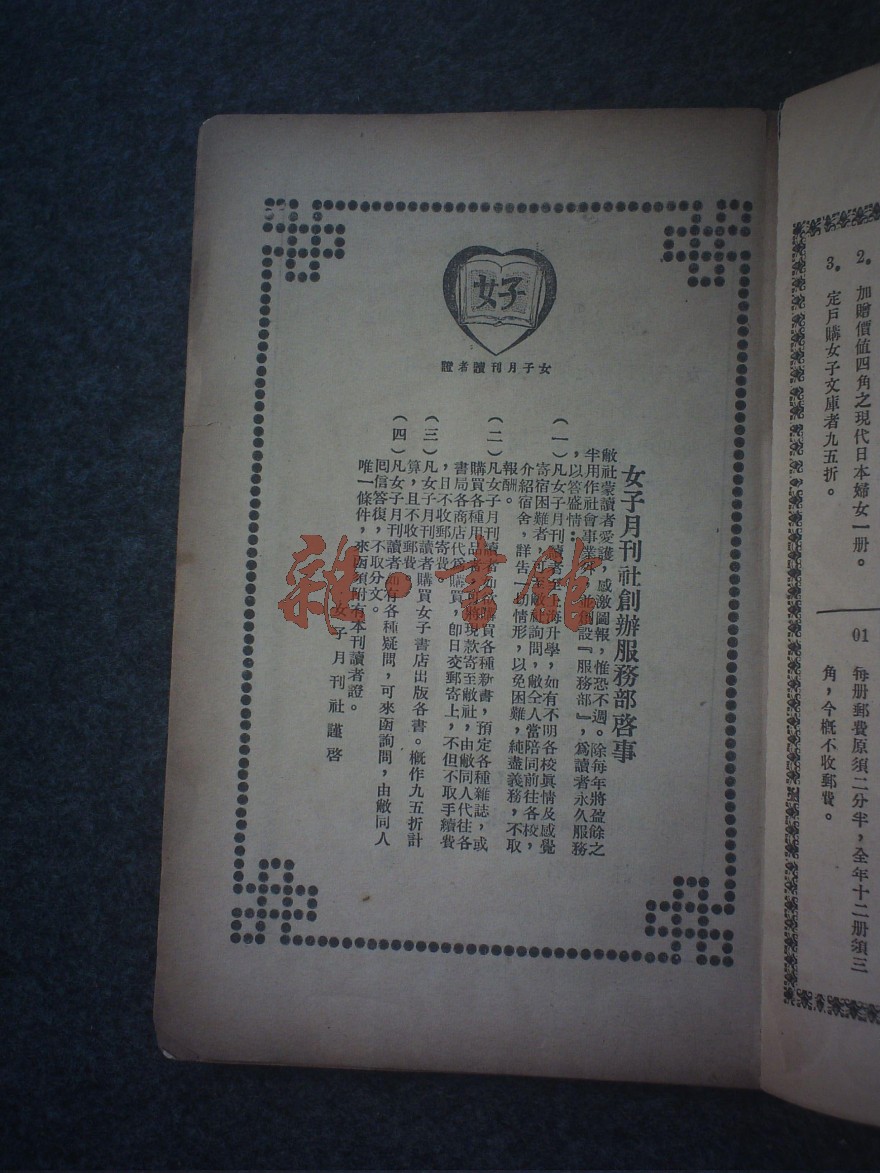 女子
女子月刊讀者證
女子月刊社創辦服務部啓事
敝社蒙讀者愛護，感激圖報，惟恐不週。除每年將盈餘之
半用作社會事業外，並創設『服務部』，爲讀者永久服務
，以答盛情：
（一）凡女子月刊讀者至上海升學，如有不明各校眞情及感覺
寄宿困難者，可至敝社詢問，敝仝人當陪同前往各校，
介紹宿舍，詳告一切情形，以免困難，純盡義務，不取
報酬。
（二）凡女子月刊讀者如欲購買各種新書，預定各種雜誌，或
購買各種用品者，可將現款寄至敝社，由敝同人代往各
書局各商店代爲購買，卽日交郵寄上，不但不取手續費
，且不收郵寄費。
（三）凡女子月刊讀者購買女子書店出版各書。槪作九五折計
算，且不收郵費。
（四）凡女子月刊讀者如有各種疑問，可來函詢問，由敝同人
囘信答復，不取分文。
唯一條件，來函須附有本刊讀者證。
女子月刊社謹啓
雜·書館
2。加贈價值四角之現代日本婦女一册。
3。定戶購女子文庫者九五折。
01 每册郵費原須二分半，全年十二册須三
角，今槪不收郵費。